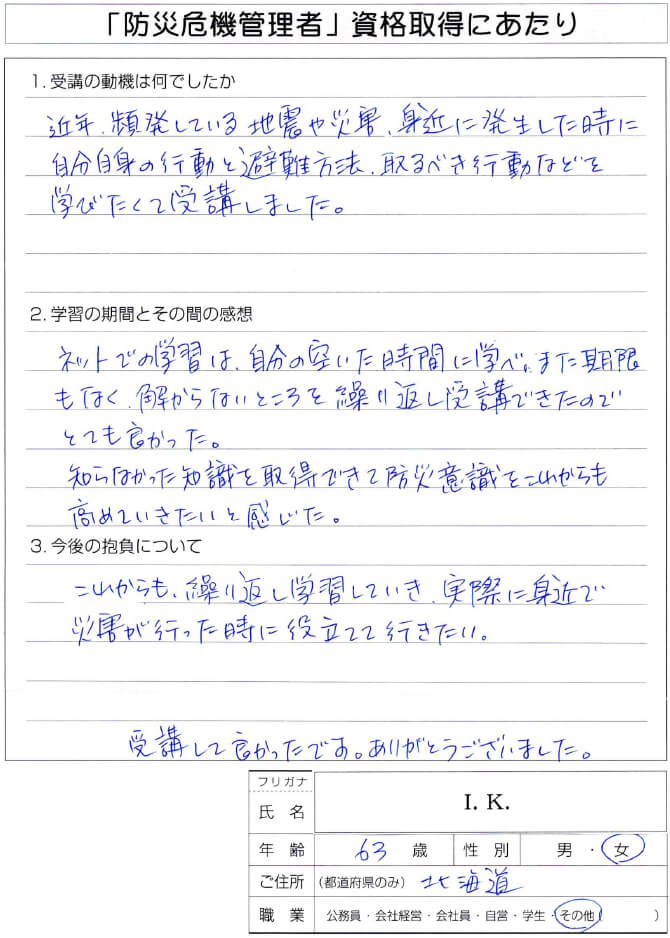 「防災危機管理者」資格取得にあたり
1. 受講の動機は何でしたか
近年、頻発している地震や災害、身近に発生した時に
自分自身の行動と避難方法、取るべき行動などを
学びたくて受講しました。
2. 学習の期間とその間の感想
ネットでの学習は、自分の空いた時間に学べ。また期限
もなく、解からないところを繰り返し受講できたので
とても良かった。
知らなかった知識を取得できて防災意識をこれからも
高めていきたいと感じた。
3. 今後の抱負について
これからも、繰り返し学習していき、実際に身近で
災害が行った時に役立てて行きたい。
受講して良かったです。ありがとうございました。
フリガナ
氏 名 I. K.
年 齢 63 歳 性 別 男 ・ 女
ご住所 (都道府県のみ) 北海道
職 業 公務員・会社経営・会社員・自営・学生・その他( )